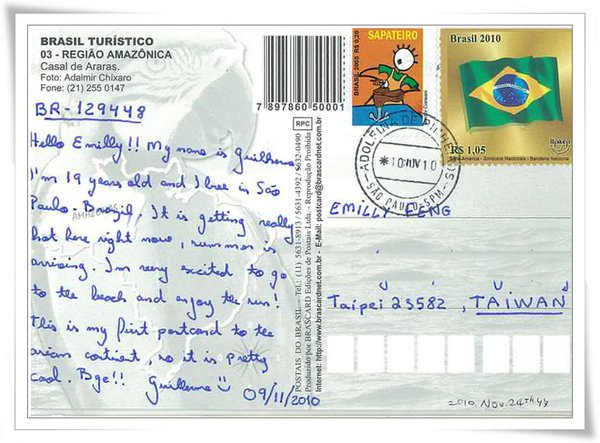 BRASIL TURÍSTICO
03 - REGIÃO AMAZÔNICA
Casal de Araras.
Foto: Adalmir Chixaro
Fone: (21) 255 0147
BR-129448
Hello Emilly!! My name is Guilherme
I'm 19 years old and I live in São
Paulo - Brazil. It is getting really
hot here right now, summer is
arriving. I'm very excited to go
to the beach and enjoy the sun!
This is my first postcard to the
asian contient, so it is pretty
cool. Bye!! Guilherme
09/11/2010
7 897860 50001
RPC
POSTAIS DO BRASIL - Tel.: (11) 5631-8913 / 5631-4392 / 5632-0490
Produzido por BRASCARD Edições de Postais Ltda. - Reprodução Proibida
Internet: http://www.brascard.net - E-Mail: postcard@brascardnet.com.br
SAPATEIRO
BRASIL 2005 R$ 0,20
Brasil 2010
R$ 1,05
América - Símbolos Nacionais - Bandeira Nacional
ADOLFINA DE PINHE
10 NOV 10
SÃO PAULO/SPM
EMILLY FENG
Taipei 23582, TAIWAN
2010. Nov. 24th